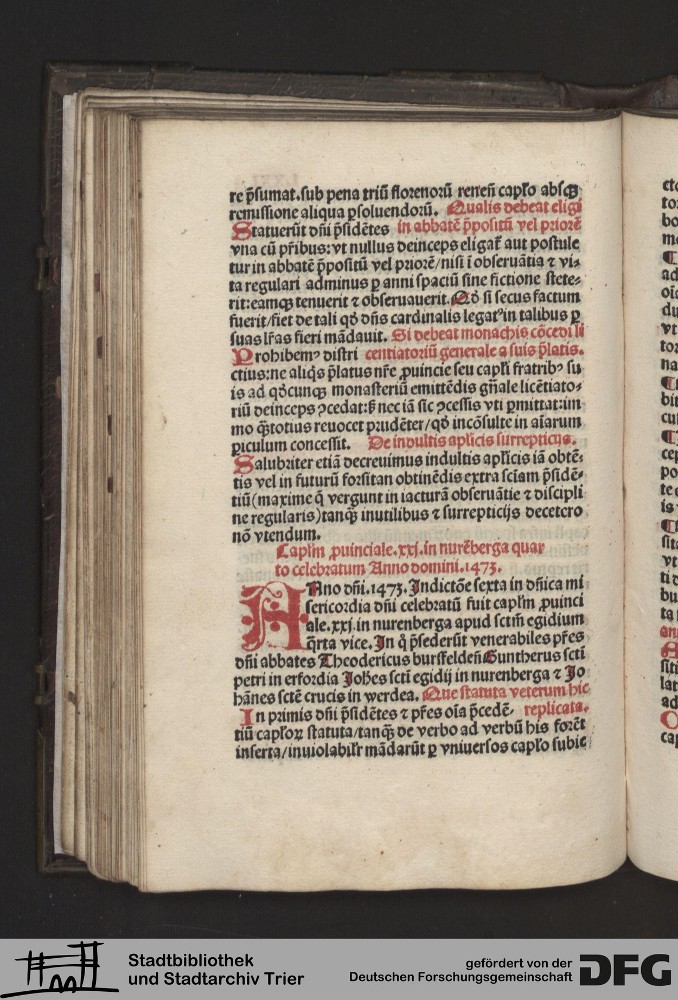 re p̄sumat. sub pena triū florenorū renen̄ capl̓o absqꝫ
remissione aliqua ꝑsoluendorū. Qualis debeat eligi
Statuerūt dn̄i p̄sidētes in abbatē p̄positū vel priorē
vna cū pr̄ibus: vt nullus deinceps eligat᷑ aut postule
tur in abbatē p̄positū vel priorē/nisi ī obseruātia ⁊ vi⸗
ta regulari adminus ꝑ anni spaciū sine fictione stete⸗
rit: eamqꝫ tenuerit ⁊ obseruauerit. Qđ si secus factum
fuerit/fiet de tali qđ dn̄s cardinalis legatꝰ in talibus ꝑ
suas lr̄as fieri mādauit. Si debeat monachis cōcedi li
Prohibemꝰ distri centiatoriū generale a suis p̄latis.
ctius: ne aliq̄s p̄latus nr̄e ꝓuincie seu capl̓i fratribꝰ su
is ad qđcunqꝫ monasteriū emittēdis gn̄ale licētiato⸗
riū deinceps ꝯcedat: ꝫ nec iā sic ꝯcessis vti ꝑmittat: im
mo q̄ntotius reuocet prudēter/qđ incōsulte in aīarum
ꝑiculum concessit. De indultis apl̓icis surrepticijs.
Salubriter etiā decreuimus indultis apl̓icis iā obtē⸗
tis vel in futurū forsitan obtinēdis extra sciam p̄sidē⸗
tiū (maxime q̄ vergunt in iacturā obseruātie ⁊ discipli
ne regularis) tanqꝫ inutilibus ⁊ surrepticijs decetero
nō vtendum.
Capl̓m ꝓuinciale. xxj. in nurēberga quar
to celebratum Anno domini. 1473.
ANno dn̄i. 1473. Indictōe sexta in dn̄ica mi
sericordia dn̄i celebratū fuit capl̓m ꝓuinci
ale. xxj. in nurenberga apud sctm̄ egidium
q̄rta vice. In q̊ p̄sederūt venerabiles pr̄es
dn̄i abbates Theodericus bursfelden̄ Guntherus scti
petri in erfordia Joh̄es scti egidij in nurenberga ⁊ Jo
hānes sctē crucis in werdea. Que statuta veterum hic
In primis dn̄i p̄sidētes ⁊ pr̄es oīa p̄cedē⸗ replicata.
tiū capl̓oꝝ statuta/tanqꝫ de verbo ad verbū his forēt
inserta/inuiolabilr̄ mādarūt ꝑ vniuersos capl̓o subie
Stadtbibliothek
und Stadtarchiv Trier
gefördert von der
Deutschen Forschungsgemeinschaft
DFG